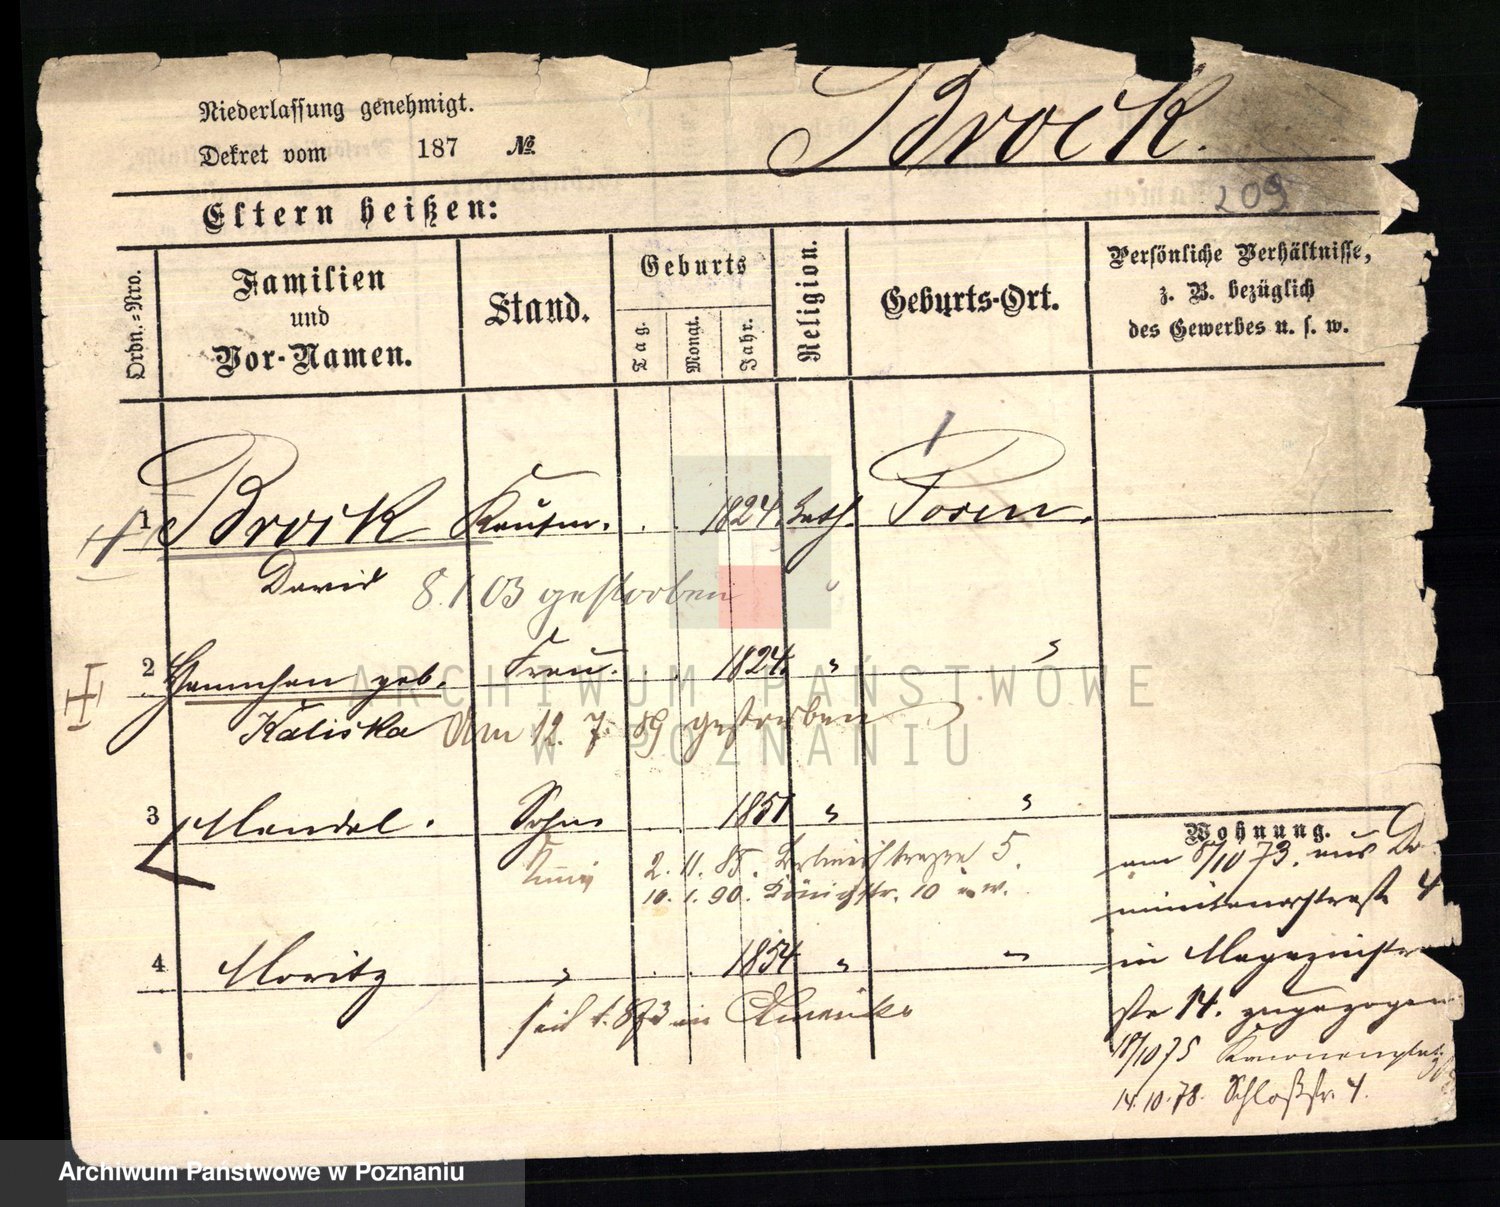 Niederlassung genehmigt.
Dekret vom 187 №
Brock.
Eltern heißen:
209
Ordn.-Nro.
Familien
und
Vor-Namen.
Stand.
Geburts
Tag.
Monat.
Jahr.
Religion.
Geburts-Ort.
Persönliche Verhältnisse,
z. B. bezüglich
des Gewerbes u. s. w.
1 Brock Kaufm. 1824. Posen.
David 8.1 03 gestorben "
2 Hannchen geb. Frau. 1824. " "
Kaliska Am 12. 7. 89 gestorben
3 Mendel. Sohn 1851 " "
2. 11. 85. 5.
10. 1. 90. Königstr. 10
4 Moritz " 1854 " "
seit 1873 in Amerika
Wohnung.
am 8/10 73. aus Do-
minikanerstraße 4
in Magazinstra-
ße 14. zugezogen
18/10 75 Kanonenplatz
14.10.78. Schloßstr. 4.
ARCHIWUM PAŃSTWOWE
W POZNANIU
Archiwum Państwowe w Poznaniu